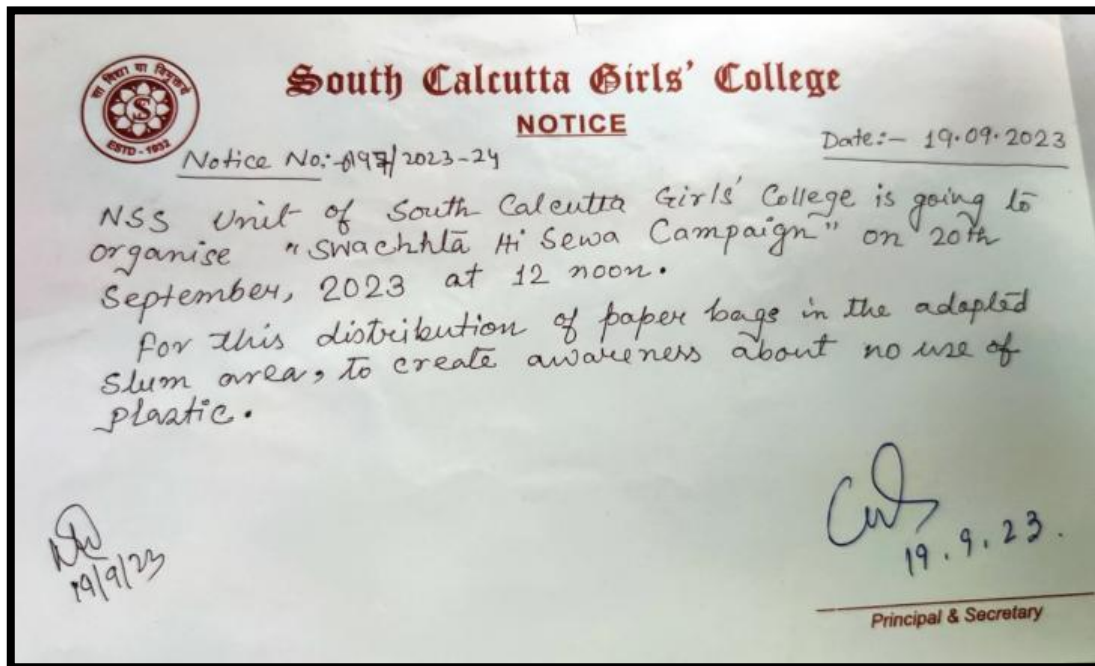 या विद्या या विमुक्तये
S
ESTD - 1932
South Calcutta Girls' College
NOTICE
Date:- 19.09.2023
Notice No:-0197/2023-24
NSS Unit of South Calcutta Girls' College is going to
organise "Swachhta Hi Sewa Campaign" on 20th
September, 2023 at 12 noon.
For this distribution of paper bags in the adapted
Slum area, to create awareness about no use of
plastic.
19/9/23
19.9.23.
Principal & Secretary